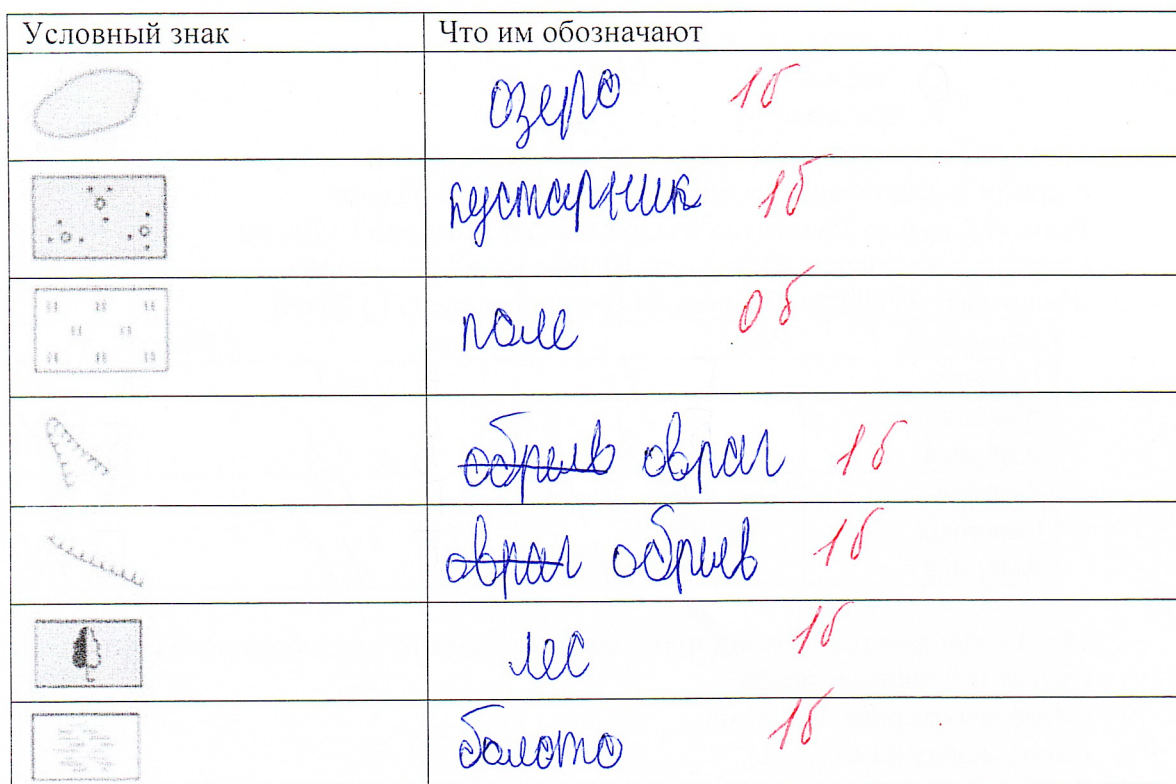 Условный знак Что им обозначают
озеро 1б
кустарник 1б
поле 0б
обрыв овраг 1б
овраг обрыв 1б
лес 1б
болото 1б